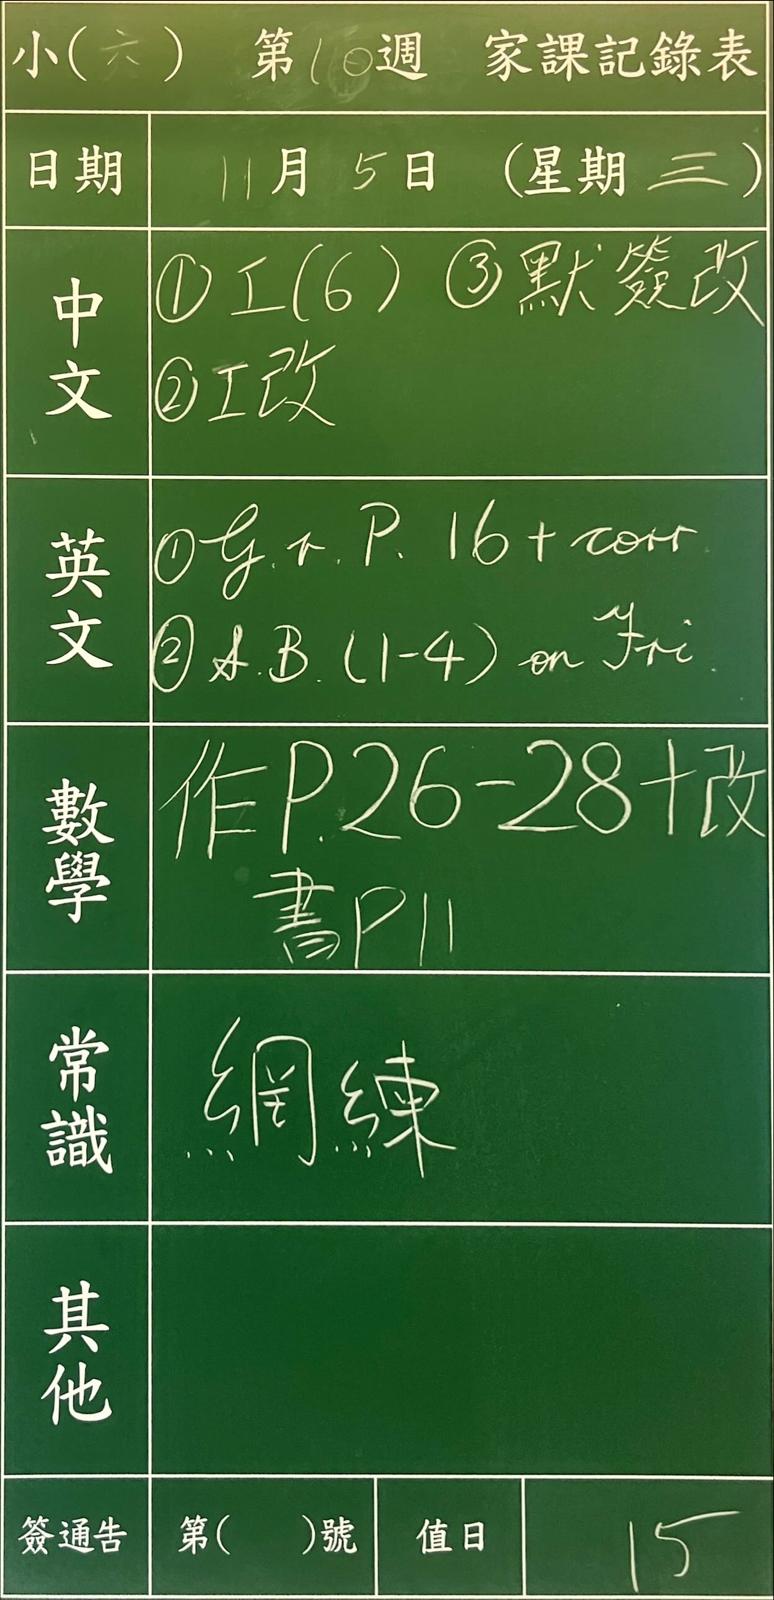 小(六) 第10週 家課記錄表
日期 11月5日 (星期三)
中文
①工(6) ③默簽改
②工改
英文
①Gr. P. 16 + corr
②A.B. (1-4) on Fri.
數學
作P.26-28+改
書P11
常識
網練
其他
簽通告 第( )號 值日 15